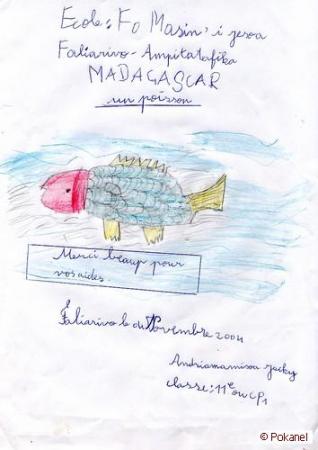 Ecole: Fo Masin' i jesoa
Faliarivo - Ampitatafika
MADAGASCAR
un poisson
Merci beaup pour
vos aides.
Faliarivo le Novembre 2004
Andriamamisoa Jacky
classe: 11e ou CP1
© Pokanel